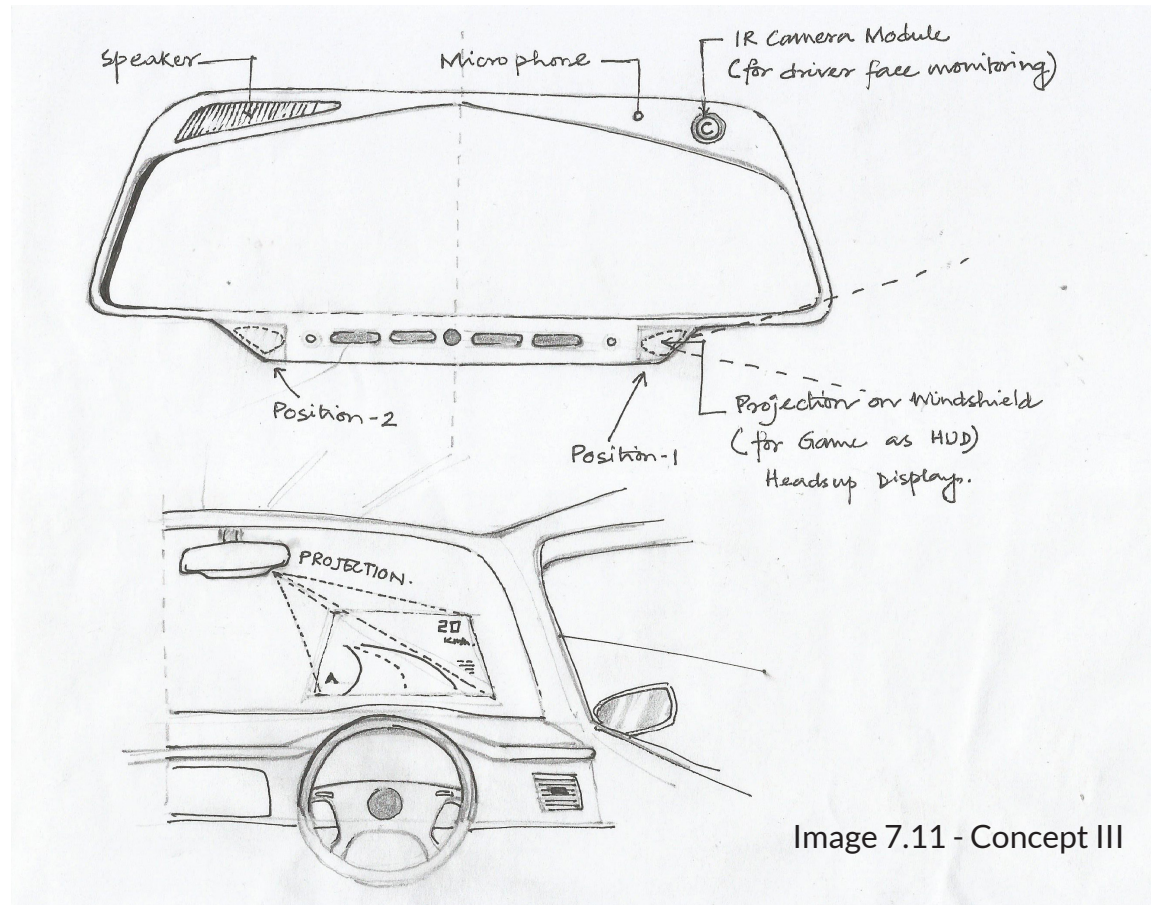 Speaker
Microphone
IR Camera Module
(for driver face monitoring)
C
Position-2
Position-1
Projection on Windshield
(for Game as HUD)
Headsup Display.
PROJECTION.
20
Km/h
A
Image 7.11 - Concept III